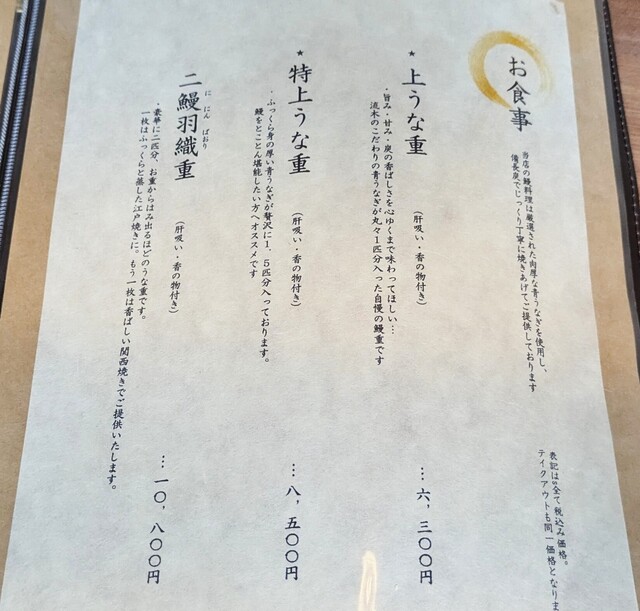 お食事
当店の鰻料理は厳選された肉厚な青うなぎを使用し、
備長炭でじっくり丁寧に焼きあげてご提供しております
表記は全て税込み価格。
テイクアウトも同一価格となりま
★
上うな重
(肝吸い・香の物付き)
・旨み・甘み・炭の香ばしさを心ゆくまで味わってほしい…
流木のこだわりの青うなぎが丸々1匹分入った自慢の鰻重です
…六,三〇〇円
★
特上うな重
(肝吸い・香の物付き)
・ふっくら身の厚い青うなぎが贅沢に1.5匹分入っております。
鰻をとことん堪能したい方へオススメです
…八,五〇〇円
二鰻羽織重
に にん ばおり
(肝吸い・香の物付き)
・豪華に二匹分、お重からはみ出るほどのうな重です。
一枚はふっくらと蒸した江戸焼きに。もう一枚は香ばしい関西焼きでご提供いたします。
…一〇,八〇〇円